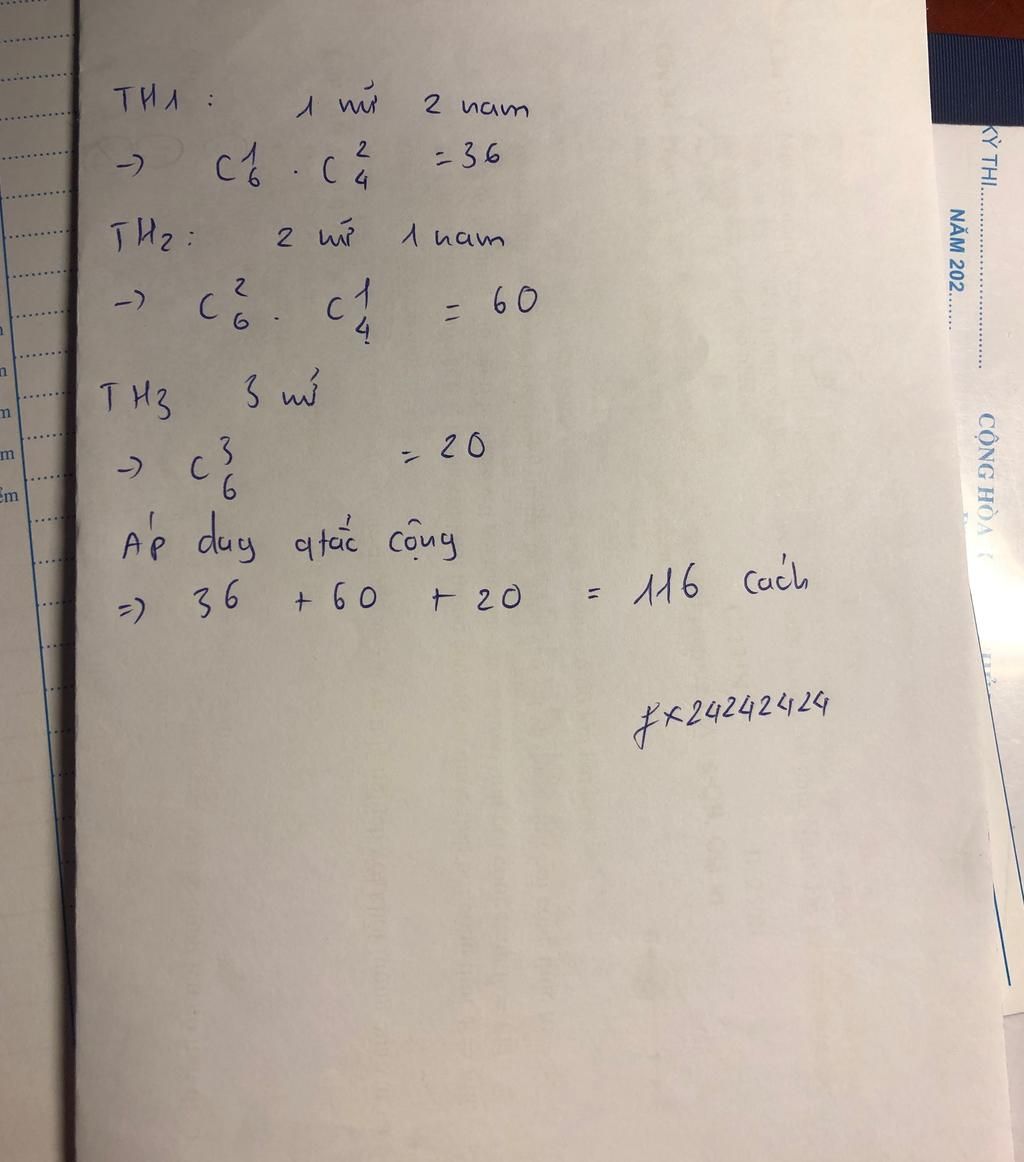 TH1 : 1 nữ 2 nam
→ C¹₆ . C²₄ = 36
TH2 : 2 nữ 1 nam
→ C²₆ . C¹₄ = 60
TH3 3 nữ
→ C³₆ = 20
Áp dug qtắc cộng
=> 36 + 60 + 20 = 116 cách
fx24242424
KỲ THI
NĂM 202
CỘNG HÒA
m
m